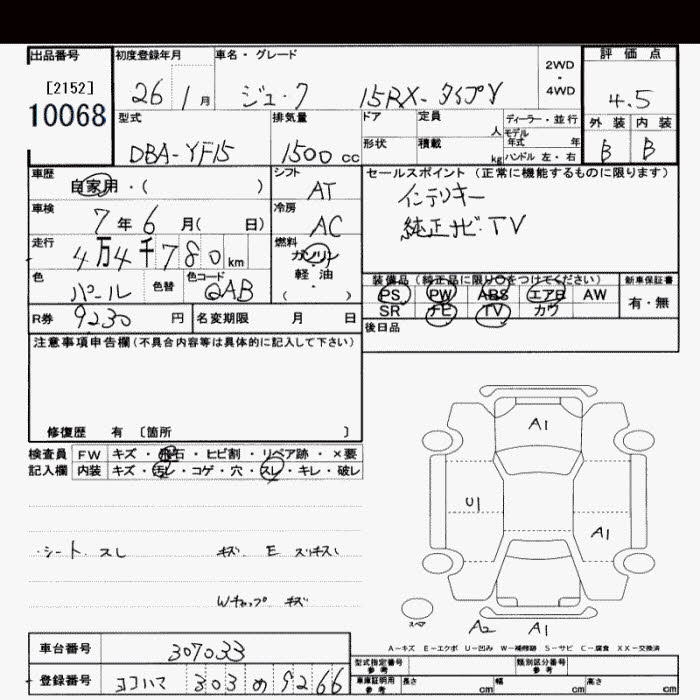 出品番号
[2152]
10068
初度登録年月
26 1 月
車名・グレード
ジューク 15RX-タイプV
2WD
・
4WD
評価点
4.5
外装 内装
B B
型式
DBA-YF15
排気量
1500 cc
ドア 定員 人
形状 積載 kg
ディーラー・並行
モデル年式 年
ハンドル 左・右
車歴
自家用・( )
シフト
AT
車検
7年6月( 日)
冷房
AC
走行
4万4千780km
燃料
ガソリン
軽油
( ・ )
色
パール
色替
色コード
QAB
R券 9230 円
名変期限 月 日
セールスポイント(正常に機能するものに限ります)
インテリキー
純正ナビ・TV
装備品(純正品に限り○をつけてください)
PS PW ABS エアB AW
SR ナビ TV カワ
新車保証書
有・無
後日品
注意事項申告欄(不具合内容等は具体的に記入して下さい)
修復歴 有 〔箇所 〕
検査員 FW キズ・飛石・ヒビ割・リペア跡・×要
記入欄 内装 キズ・汚レ・コゲ・穴・スレ・キレ・破レ
・シート スレ キズ E スリキズ
Wキャップ キズ
A1
U1
A1
スペア
A2 A1
A-キズ E-エクボ U-凹み W-補修跡 S-サビ C-腐食 XX-交換済
車台番号
307033
登録番号
ヨコハマ 303 め 9266
型式指定番号
参考
類別区分番号
参考
車庫証明用
参考
長さ cm 幅 cm 高さ cm